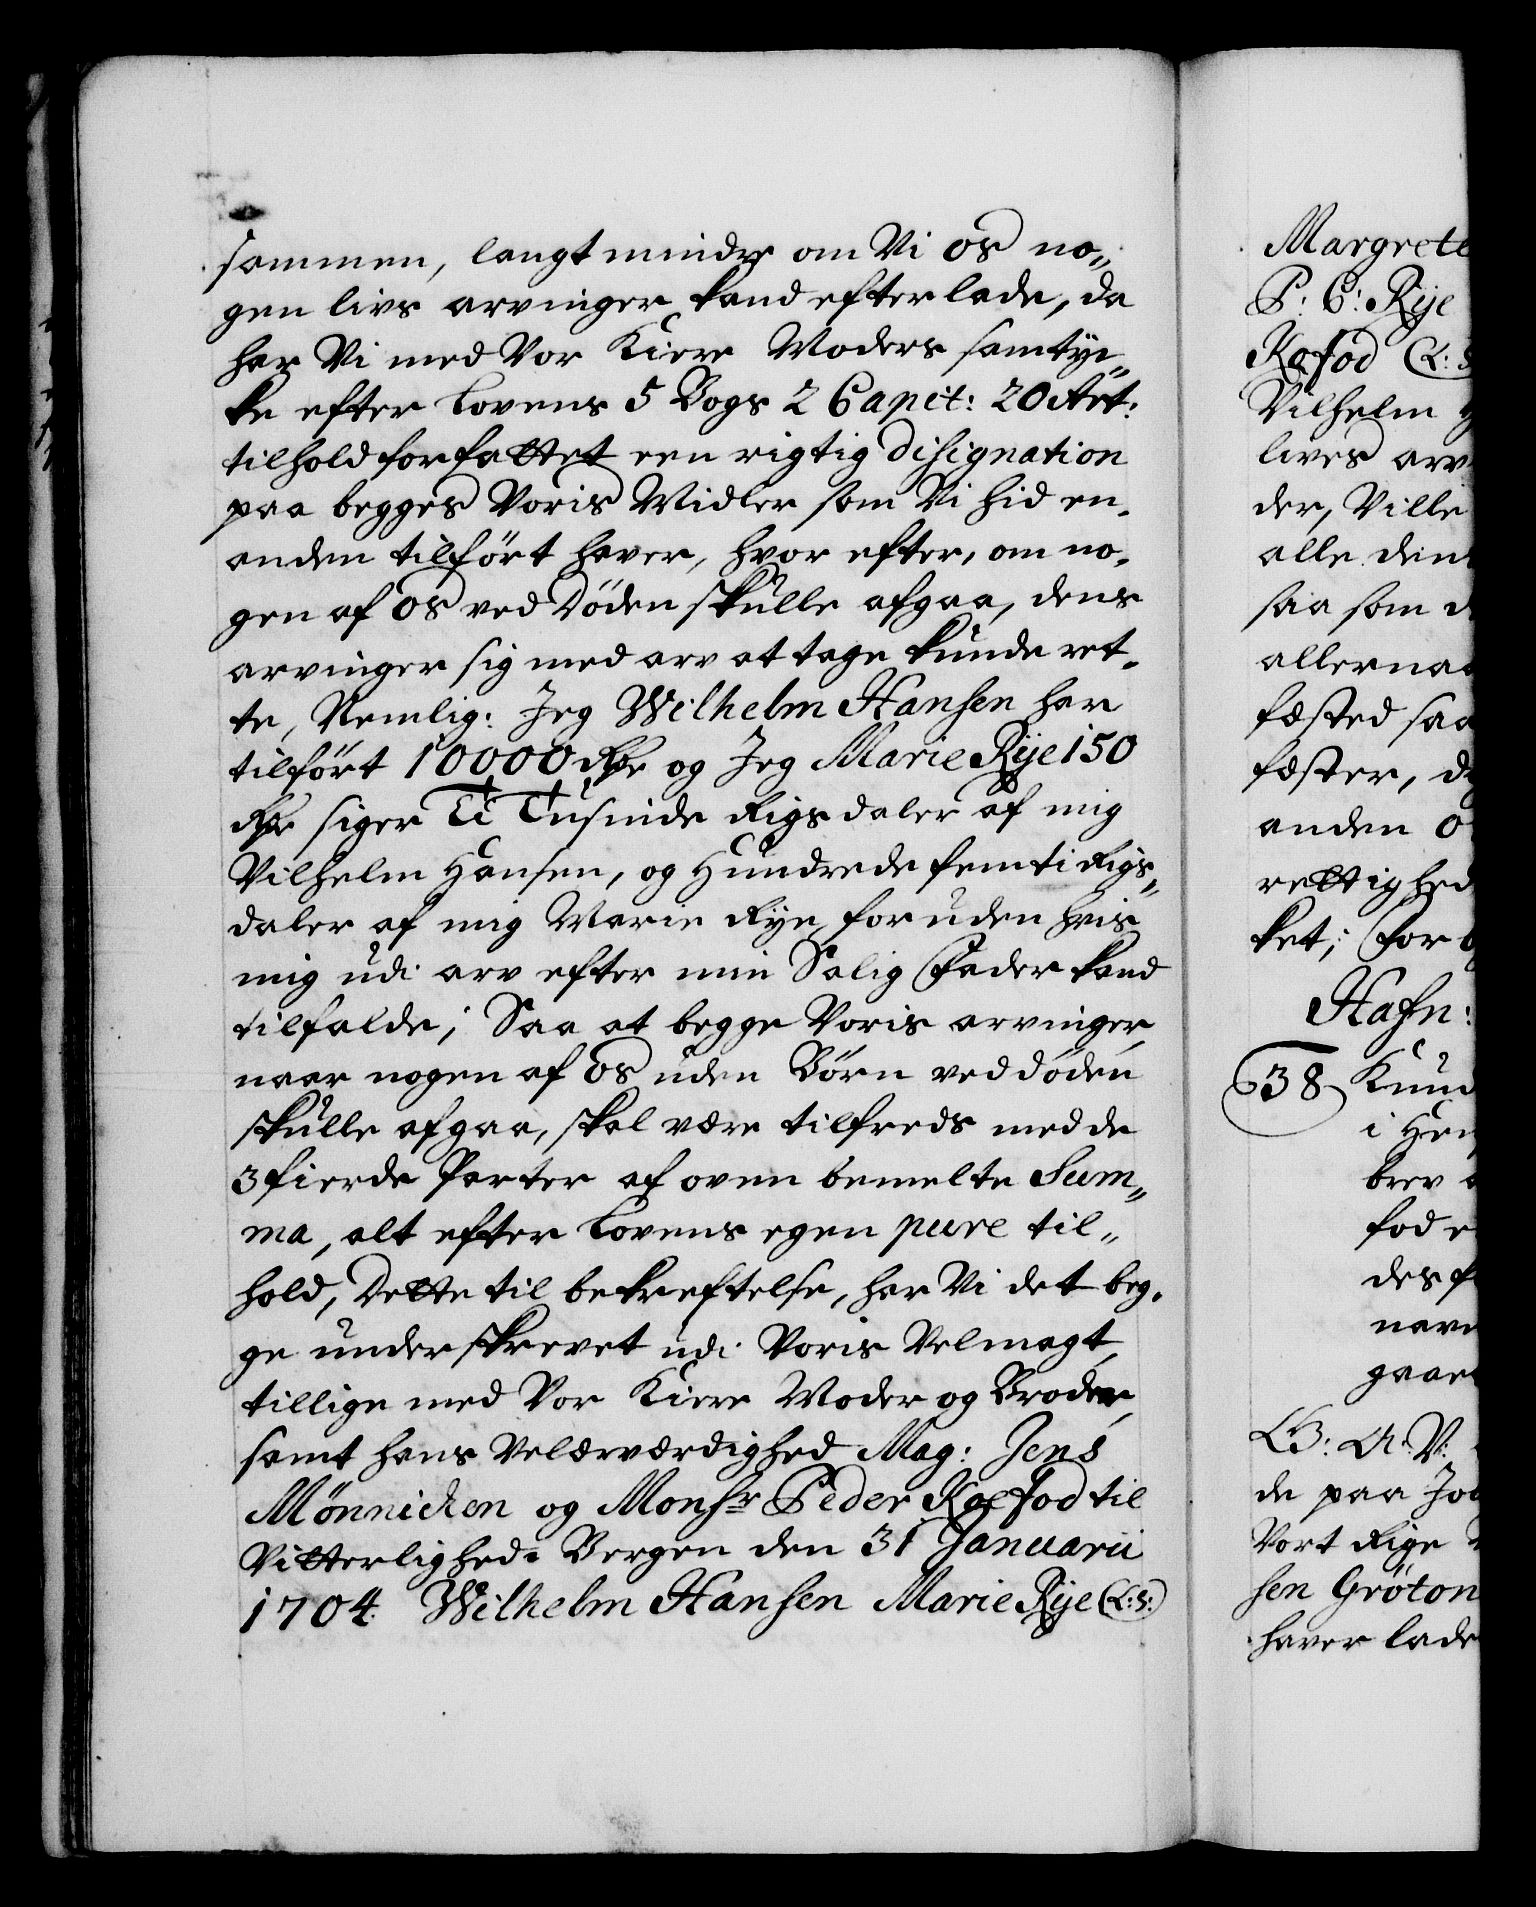 sammen, langt mindre om Vi os no„
gen livs arvinger kand efterlade, da
har Vi med Vor Kiere Moders samtyc„
ke efter Lovens 5 Bogs 2 Capit: 20 Art:
tilhold forfattet een rigtig disignation
paa begges Voris Midler som Vi hid en„
anden tilført haver, hvor efter, om no„
gen af os ved Døden skulle afgaa, dens
arvinger sig med arv at tage kunde ret„
te, Nemlig: Jeg Wilhelm Hansen har
tilført 10000 Rdr og Jeg Marie Rÿe 150
Rdr siger Ti Tusinde Rigsdaler af mig
Vilhelm Hansen, og Hundrede femti Rigs„
daler af mig Marie Rÿe, foruden hvis
mig udi arv efter min Salig Fader kand
tilfalde; Saa at begge Voris arvinger,
naar nogen af os uden Børn ved døden
skulle afgaa, skal være tilfreds med de
3 fierde Parter af oven bemelte Sum„
ma, alt efter Lovens egen pure til„
hold, Dette til bekreftelse, har Vi det beg„
ge underskrevet udi Voris Velmagt,
tillige med Vor Kiere Moder og Broder,
samt hans Velærværdighed Mag: Jens
Mönnichen og Monsr Peder Kofod til
Vitterlighed. Bergen den 31 Januarii
1704. Wilhelm Hansen Marie Rÿe (L:S:)
Margrete
P: C: Rÿe
Kofod (L:S
Vilhelm H
lives arv
der, Ville
alle
saa som
allernaa
fæsted saa
fæster,
anden
rettighed
ket; For
Hafn:
38 Knud
i
brev
fod
des
gaar
G: A: V:
de paa
Vort Rige
sen Gröton
haver lade